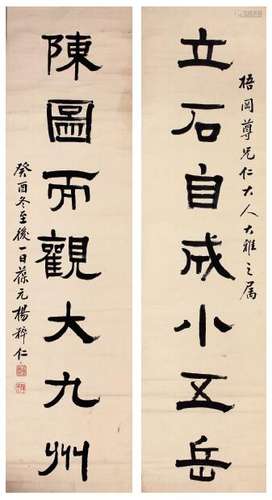 梧岡尊兄仁大人大雅之属
立石自成小五岳
陳圖而觀大九州
癸酉冬至後一日葆元楊粹仁